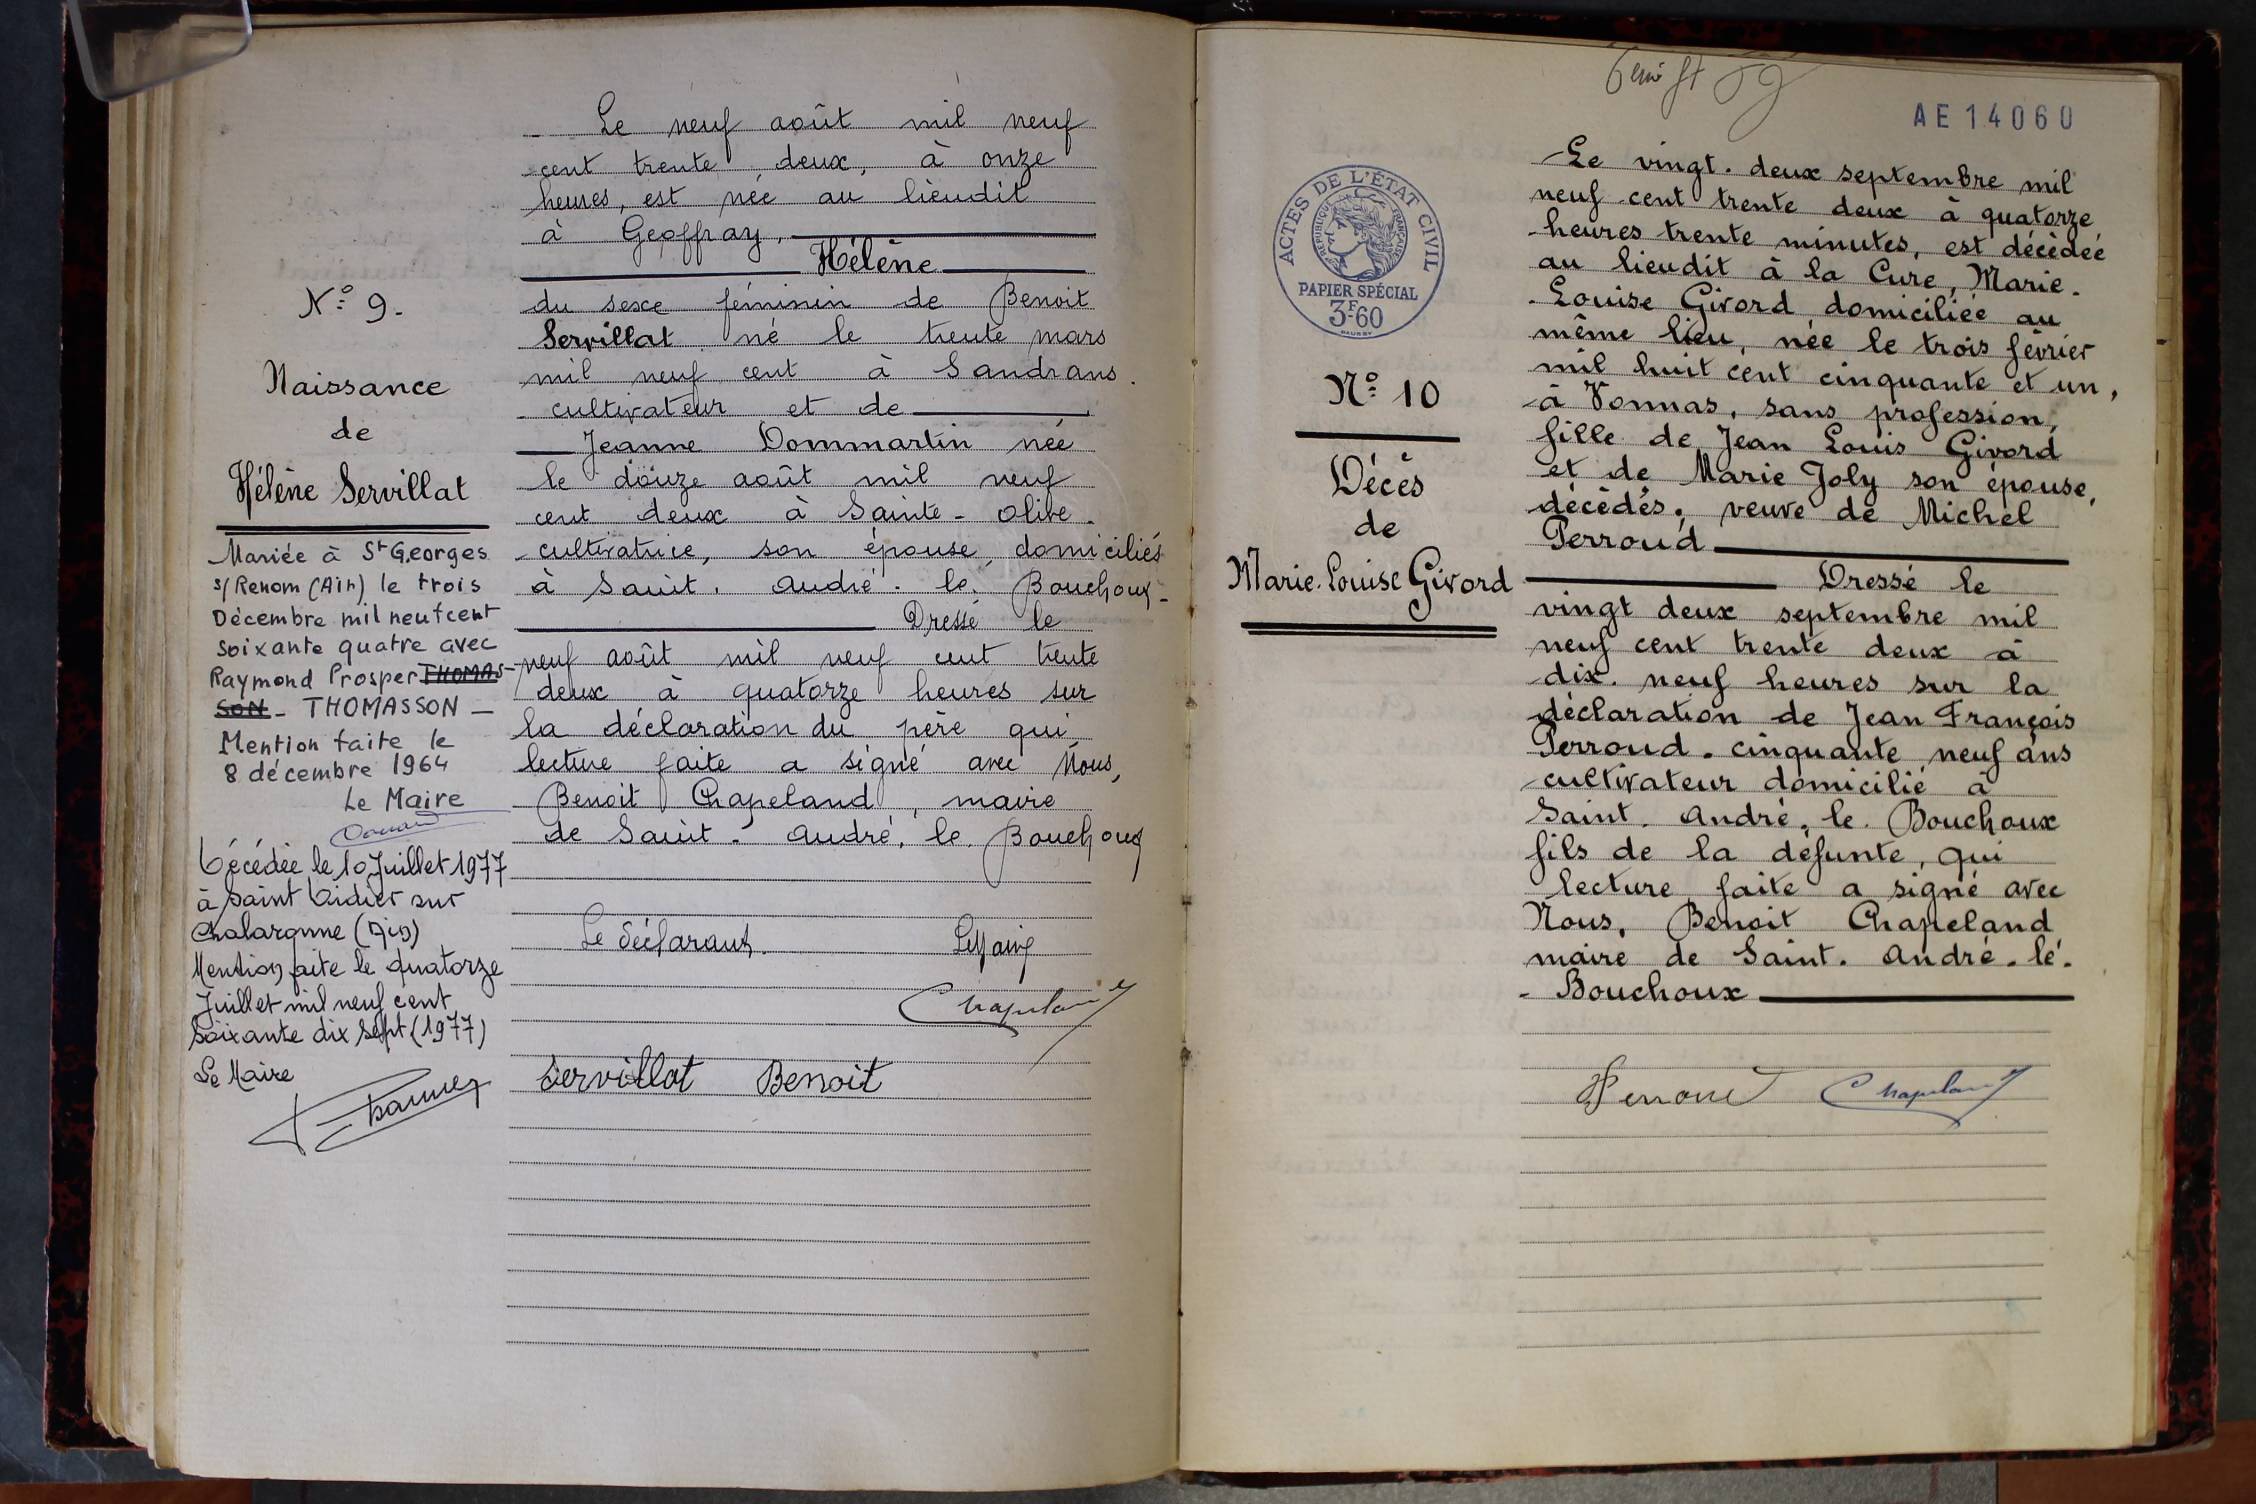 N° 9.
Naissance
de
Hélène Servillat
Mariée à St Georges
s/Renom (Ain) le trois
Décembre mil neuf cent
soixante quatre avec
Raymond Prosper THOMAS-
SON - THOMASSON -
Mention faite le
8 décembre 1964
Le Maire
Décédée le 10 Juillet 1977
à Saint Didier sur
Chalaronne (Ain)
Mention faite le quatorze
Juillet mil neuf cent
soixante dix sept (1977)
Le Maire
Le neuf août mil neuf
cent trente deux, à onze
heures, est née au lieudit
à Geoffray,
Hélène
du sexe féminin de Benoit
Servillat né le trente mars
mil neuf cent à Sandrans
cultivateur et de
Jeanne Dommartin née
le douze août mil neuf
cent deux à Sainte-Olive.
cultivatrice, son épouse, domiciliés
à Saint. André. le. Bouchoux-
Dressé le
neuf août mil neuf cent trente
deux à quatorze heures sur
la déclaration du père qui
lecture faite a signé avec Nous,
Benoit Chapeland, maire
de Saint. André. le. Bouchoux
Le déclarant. Le Maire
Chapeland
Servillat Benoit
AE 14060
ACTES DE L'ÉTAT CIVIL
RÉPUBLIQUE FRANÇAISE
PAPIER SPÉCIAL
3F60
N° 10
Décès
de
Marie. Louise Givord
Le vingt. deux septembre mil
neuf cent trente deux à quatorze
heures trente minutes, est décédée
au lieudit à la Cure, Marie.
Louise Givord domiciliée au
même lieu, née le trois février
mil huit cent cinquante et un,
à Vonnas, sans profession,
fille de Jean Louis Givord
et de Marie Joly son épouse,
décédés. veuve de Michel
Perroud
Dressé le
vingt deux septembre mil
neuf cent trente deux à
dix. neuf heures sur la
déclaration de Jean François
Perroud. cinquante neuf ans
cultivateur domicilié à
Saint. André. le. Bouchoux
fils de la défunte, qui
lecture faite a signé avec
Nous, Benoit Chapeland
maire de Saint. André. le.
- Bouchoux
Perroud Chapeland